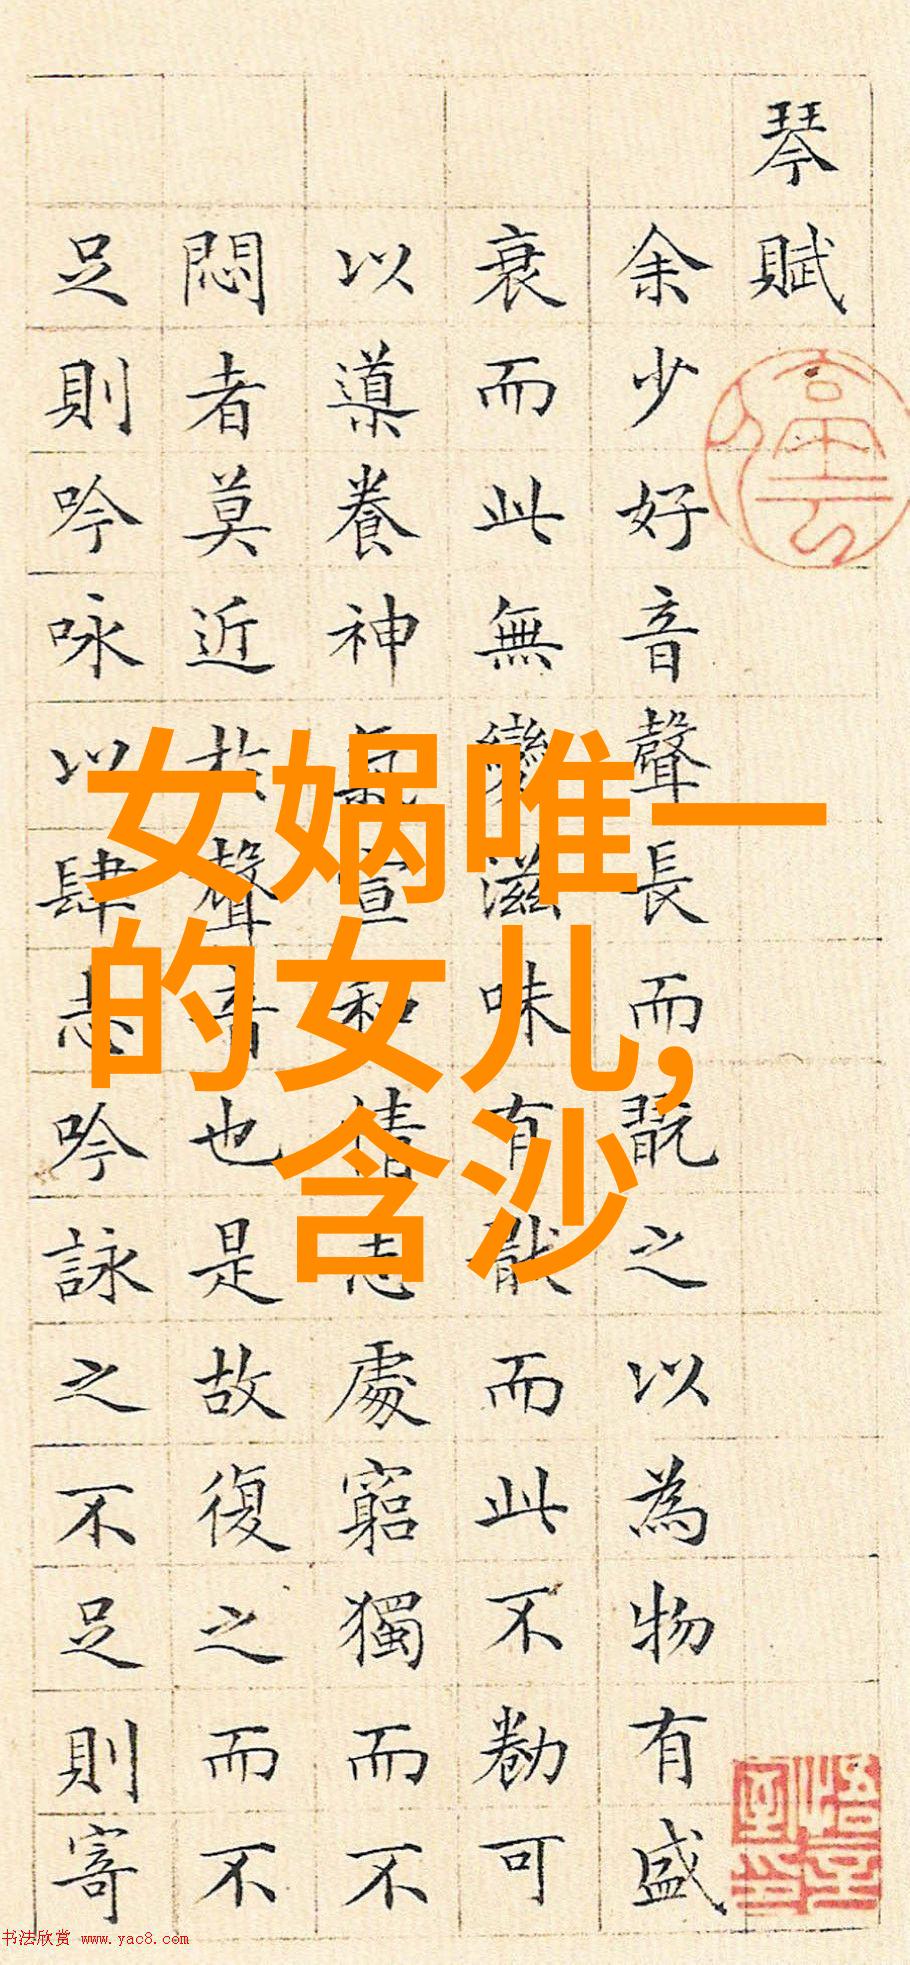 琴賦
余少好音聲長而翫之以為物有盛
衰而此無變滋味有猒而此不勌可
以導養神氣宣和情志處窮獨而不
悶者莫近於聲音也是故復之而不
足則吟咏以肆志吟詠之不足則寄
女娲唯一
的女儿,
含沙
书法欣赏 www.yac8.com